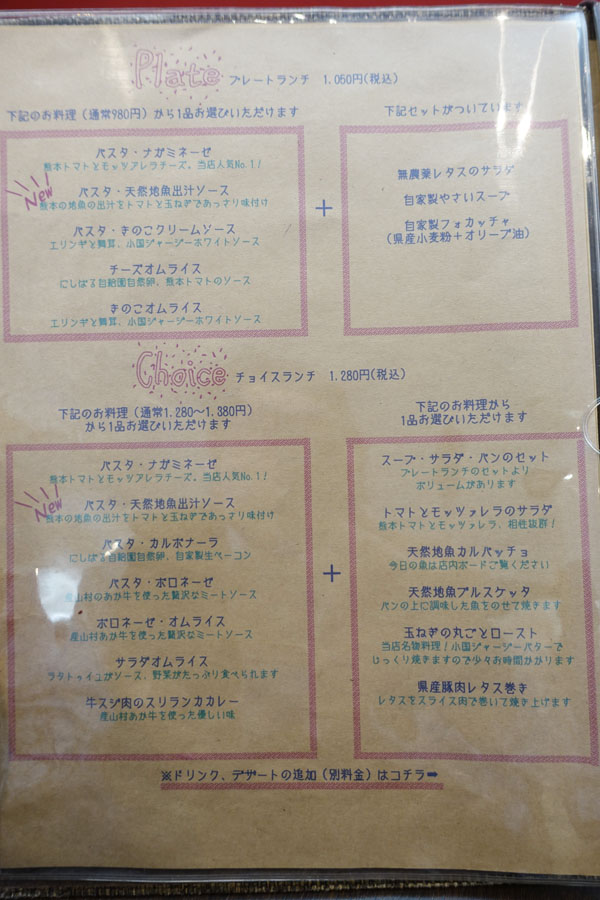 Plate プレートランチ 1.050円(税込)
下記のお料理（通常980円）から1品お選びいただけます
パスタ・ナガミネーゼ
熊本トマトとモッツァレラチーズ。当店人気No.1！
New
パスタ・天然地魚出汁ソース
熊本の地魚の出汁をトマトと玉ねぎであっさり味付け
パスタ・きのこクリームソース
エリンギと舞茸、小国ジャージーホワイトソース
チーズオムライス
にしばる自給園自然卵、熊本トマトのソース
きのこオムライス
エリンギと舞茸、小国ジャージーホワイトソース
+
下記セットがついています
無農薬レタスのサラダ
自家製やさいスープ
自家製フォカッチャ
（県産小麦粉＋オリーブ油）
Choice チョイスランチ 1.280円(税込)
下記のお料理（通常1.280～1.380円）
から1品お選びいただけます
パスタ・ナガミネーゼ
熊本トマトとモッツァレラチーズ。当店人気No.1！
New
パスタ・天然地魚出汁ソース
熊本の地魚の出汁をトマトと玉ねぎであっさり味付け
パスタ・カルボナーラ
にしばる自給園自然卵、自家製生ベーコン
パスタ・ボロネーゼ
産山村のあか牛を使った贅沢なミートソース
ボロネーゼ・オムライス
産山村あか牛を使った贅沢なミートソース
サラダオムライス
ラタトゥイユがソース、野菜がたっぷり食べられます
牛スジ肉のスリランカカレー
産山村あか牛を使った優しい味
+
下記のお料理から
1品お選びいただけます
スープ・サラダ・パンのセット
プレートランチのセットより
ボリュームがあります
トマトとモッツァレラのサラダ
熊本トマトとモッツァレラ、相性抜群！
天然地魚カルパッチョ
今日の魚は店内ボードご覧ください
天然地魚ブルスケッタ
パンの上に調味した魚をのせて焼きます
玉ねぎの丸ごとロースト
当店名物料理！小国ジャージーバターで
じっくり焼きますので少々お時間かかります
県産豚肉レタス巻き
レタスをスライス肉で巻いて焼き上げます
※ドリンク、デザートの追加（別料金）はコチラ➡